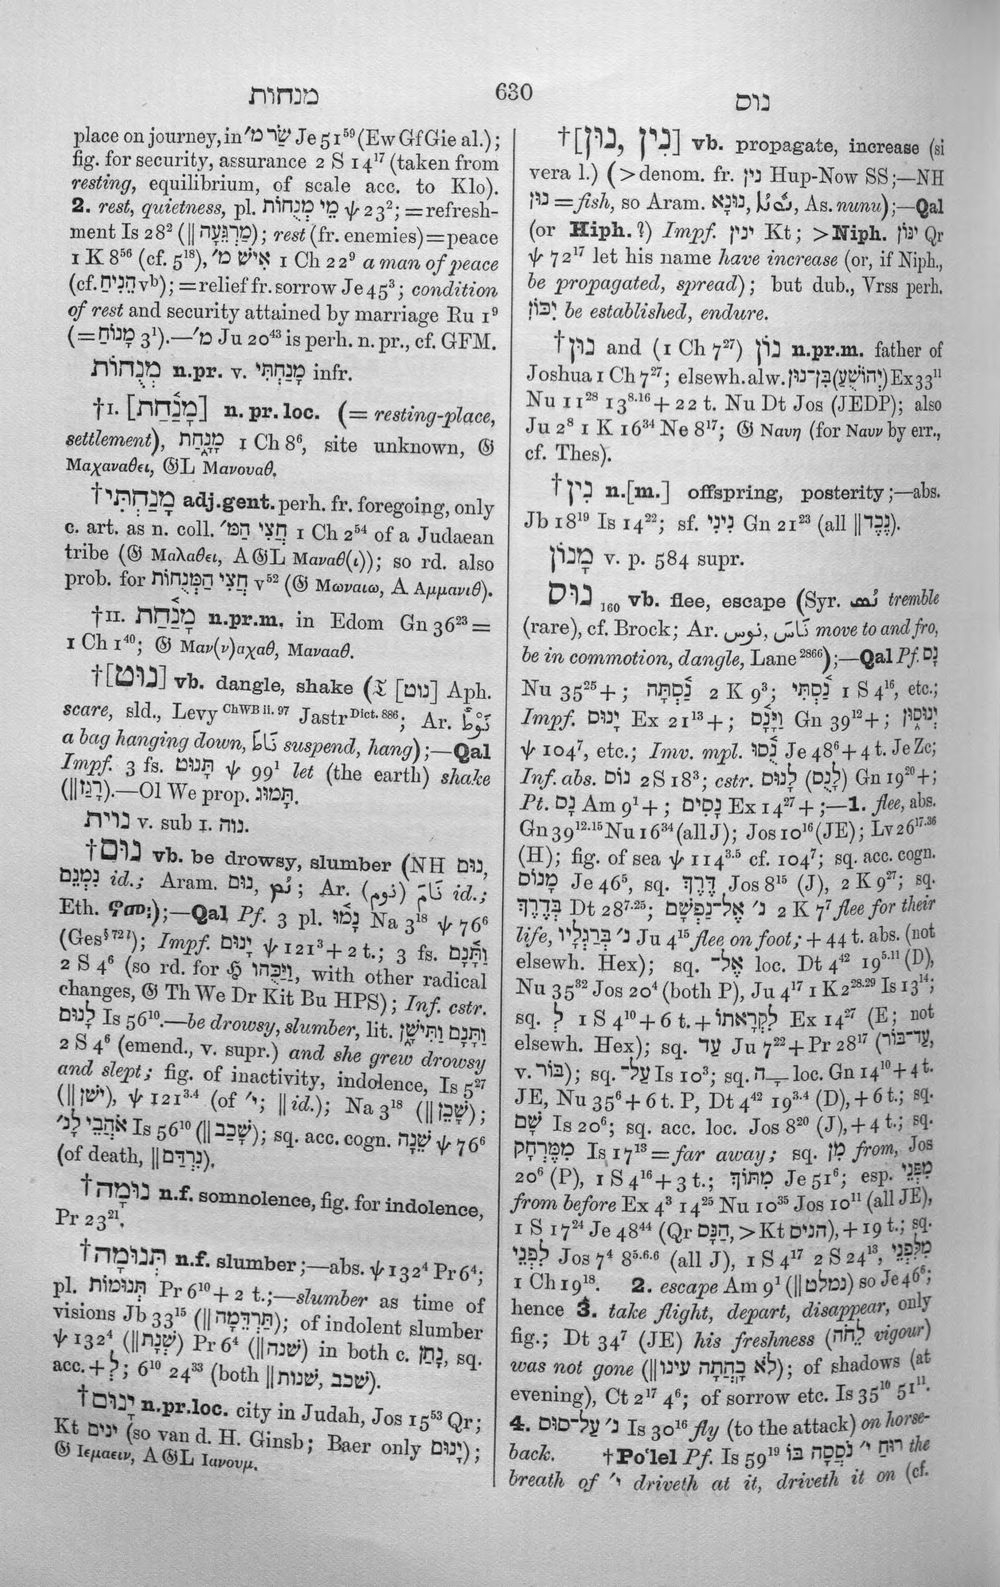 מנחות
630
נוס
place on journey, in שַׂר מ׳ Je 51⁵⁹ (Ew Gf Gie al.);
fig. for security, assurance 2 S 14¹⁷ (taken from
resting, equilibrium, of scale acc. to Klo).
2. rest, quietness, pl. מֵי מְנֻחוֹת ψ 23²; = refresh-
ment Is 28² (‖ מַרְגֵּעָה); rest (fr. enemies) = peace
1 K 8⁵⁶ (cf. 5¹⁸), אִישׁ מ׳ 1 Ch 22⁹ a man of peace
(cf. הֵנִיחַ vᵇ); = relief fr. sorrow Je 45³; condition
of rest and security attained by marriage Ru 1⁹
(= מָנוֹחַ 3¹).—מ׳ Ju 20⁴³ is perh. n. pr., cf. GFM.
מְנֻחוֹת n.pr. v. מָנַחְתִּי infr.
†I. [מָנַ֫חַת] n. pr. loc. (= resting-place,
settlement), מָנָ֑חַת 1 Ch 8⁶, site unknown, 𝔊
Μαχαναθει, 𝔊L Μανουαθ.
†מָנַחְתִּי adj.gent. perh. fr. foregoing, only
c. art. as n. coll. חֲצִי הַמּ׳ 1 Ch 2⁵⁴ of a Judaean
tribe (𝔊 Μαλαθει, A 𝔊L Μαναθ(ι)); so rd. also
prob. for חֲצִי הַמְּנֻחוֹת v⁵² (𝔊 Μωναιω, A Αμμανιθ).
†II. מָנַ֫חַת n.pr.m. in Edom Gn 36²³ =
1 Ch 1⁴⁰; 𝔊 Μαν(ν)αχαθ, Μαναаθ.
†[נוּט] vb. dangle, shake (𝔗 [נוט] Aph.
scare, sld., Levy ᶜʰᵂᴮ ⁱⁱ· ⁹⁷ Jastr ᴰⁱᶜᵗ· ⁸⁸⁶; Ar. نَوْطٌ
a bag hanging down, نَاطَ suspend, hang);—Qal
Impf. 3 fs. תָּנוּט ψ 99¹ let (the earth) shake
(‖ רגז).—Ol We prop. תָּמוּג.
נוית v. sub I. נוה.
†נוּם vb. be drowsy, slumber (NH נוּם,
נִמְנֵם id.; Aram. נוּם, ܢܳܡ; Ar. نَامَ (نوم) id.;
Eth. ኖመ፡);—Qal Pf. 3 pl. נָמוּ Na 3¹⁸ ψ 76⁶
(Ges§ ⁷²ˡ); Impf. יָנוּם ψ 121³ + 2 t.; 3 fs. וַתָּנָם
2 S 4⁶ (so rd. for ℌ וַיַּכֻּהוּ, with other radical
changes, 𝔊 Th We Dr Kit Bu HPS); Inf. cstr.
לָנוּם Is 56¹⁰.—be drowsy, slumber, lit. וַתָּנָם וַתִּישָׁן
2 S 4⁶ (emend., v. supr.) and she grew drowsy
and slept; fig. of inactivity, indolence, Is 5²⁷
(‖ יָשֵׁן), ψ 121³·⁴ (of י׳; ‖ id.); Na 3¹⁸ (‖ שָׁכַן);
אֹהֲבֵי לָנ׳ Is 56¹⁰ (‖ שָׁכַב); sq. acc. cogn. שֵׁנָה ψ 76⁶
(of death, ‖ נִרְדָּם).
†נוּמָה n.f. somnolence, fig. for indolence,
Pr 23²¹.
†תְּנוּמָה n.f. slumber;—abs. ψ 132⁴ Pr 6⁴;
pl. תְּנוּמוֹת Pr 6¹⁰ + 2 t.;—slumber as time of
visions Jb 33¹⁵ (‖ תַּרְדֵּמָה); of indolent slumber
ψ 132⁴ (‖ שְׁנָת) Pr 6⁴ (‖ שׁנה) in both c. נָתַן, sq.
acc. + לְ; 6¹⁰ 24³³ (both ‖ שכב, שנות).
†יָנוּם n.pr.loc. city in Judah, Jos 15⁵³ Qr;
Kt ינים (so van d. H. Ginsb; Baer only יָנוּם);
𝔊 Ιεμαειν, A 𝔊L Ιανουμ.
†[נוּן, נִין] vb. propagate, increase (si
vera l.) (> denom. fr. נין Hup-Now SS;—NH
נוּן = fish, so Aram. נוּנָא, ܢܘܢܐ, As. nunu);—Qal
(or Hiph.?) Impf. ינין Kt; > Niph. יִנּוֹן Qr
ψ 72¹⁷ let his name have increase (or, if Niph.,
be propagated, spread); but dub., Vrss perh.
יִכּוֹן be established, endure.
†נוּן and (1 Ch 7²⁷) נוֹן n.pr.m. father of
Joshua 1 Ch 7²⁷; elsewh. alw. (יְהוֹשֻׁעַ) בִּן־נוּן Ex 33¹¹
Nu 11²⁸ 13⁸·¹⁶ + 22 t. Nu Dt Jos (JEDP); also
Ju 2⁸ 1 K 16³⁴ Ne 8¹⁷; 𝔊 Ναυη (for Ναυν by err.,
cf. Thes).
†נִין n.[m.] offspring, posterity;—abs.
Jb 18¹⁹ Is 14²²; sf. נִינִי Gn 21²³ (all ‖ נֶכֶד).
מָנוֹן v. p. 584 supr.
נוּס ₁₆₀ vb. flee, escape (Syr. ܢܳܣ tremble
(rare), cf. Brock; Ar. نَاسَ, نوس move to and fro,
be in commotion, dangle, Lane ²⁸⁶⁶);—Qal Pf. נָס
Nu 35²⁵ +; נָסְתָּה 2 K 9³; נַסְתִּי 1 S 4¹⁶, etc.;
Impf. יָנוּס Ex 21¹³ +; וַיָּנָס Gn 39¹² +; יְנוּסוּן
ψ 104⁷, etc.; Imv. mpl. נֻסוּ Je 48⁶ + 4 t. Je Zc;
Inf. abs. נוֹס 2 S 18³; cstr. לָנוּס (לָנֻס) Gn 19²⁰ +;
Pt. נָס Am 9¹ +; נָסִים Ex 14²⁷ +;—1. flee, abs.
Gn 39¹²·¹⁵ Nu 16³⁴ (all J); Jos 10¹⁶ (JE); Lv 26¹⁷·³⁶
(H); fig. of sea ψ 114³·⁵ cf. 104⁷; sq. acc. cogn.
מָנוֹס Je 46⁵, sq. דֶּרֶךְ Jos 8¹⁵ (J), 2 K 9²⁷; sq.
בְּדֶרֶךְ Dt 28⁷·²⁵; נ׳ אֶל־נַפְשָׁם 2 K 7⁷ flee for their
life, נ׳ בְּרַגְלָיו Ju 4¹⁵ flee on foot; + 44 t. abs. (not
elsewh. Hex); sq. אֶל־ loc. Dt 4⁴² 19⁵·¹¹ (D),
Nu 35³² Jos 20⁴ (both P), Ju 4¹⁷ 1 K 2²⁸·²⁹ Is 13¹⁴;
sq. לְ 1 S 4¹⁰ + 6 t. + לִקְרָאתוֹ Ex 14²⁷ (E; not
elsewh. Hex); sq. עַד Ju 7²² + Pr 28¹⁷ (עַד־בּוֹר,
v. בּוֹר); sq. עַל־ Is 10³; sq. ־ָה loc. Gn 14¹⁰ + 4 t.
JE, Nu 35⁶ + 6 t. P, Dt 4⁴² 19³·⁴ (D), + 6 t.; sq.
שָׁם Is 20⁶; sq. acc. loc. Jos 8²⁰ (J), + 4 t.; sq.
מִמֶּרְחָק Is 17¹³ = far away; sq. מִן from, Jos
20⁶ (P), 1 S 4¹⁶ + 3 t.; מִתּוֹךְ Je 51⁶; esp. מִפְּנֵי
from before Ex 4³ 14²⁵ Nu 10³⁵ Jos 10¹¹ (all JE),
1 S 17²⁴ Je 48⁴⁴ (Qr הַנָּס, > Kt הניס), + 19 t.; sq.
לִפְנֵי Jos 7⁴ 8⁵·⁶·⁶ (all J), 1 S 4¹⁷ 2 S 24¹³, מִלִּפְנֵי
1 Ch 19¹⁸. 2. escape Am 9¹ (‖ נמלט) so Je 46⁶;
hence 3. take flight, depart, disappear, only
fig.; Dt 34⁷ (JE) his freshness (לֵחֹה vigour)
was not gone (‖ לֹא כָהֲתָה עינו); of shadows (at
evening), Ct 2¹⁷ 4⁶; of sorrow etc. Is 35¹⁰ 51¹¹.
4. נ׳ עַל־סוּס Is 30¹⁶ fly (to the attack) on horse-
back. †Po'lel Pf. Is 59¹⁹ רוּחַ י׳ נֹסְסָה בוֹ the
breath of י׳ driveth at it, driveth it on (cf.